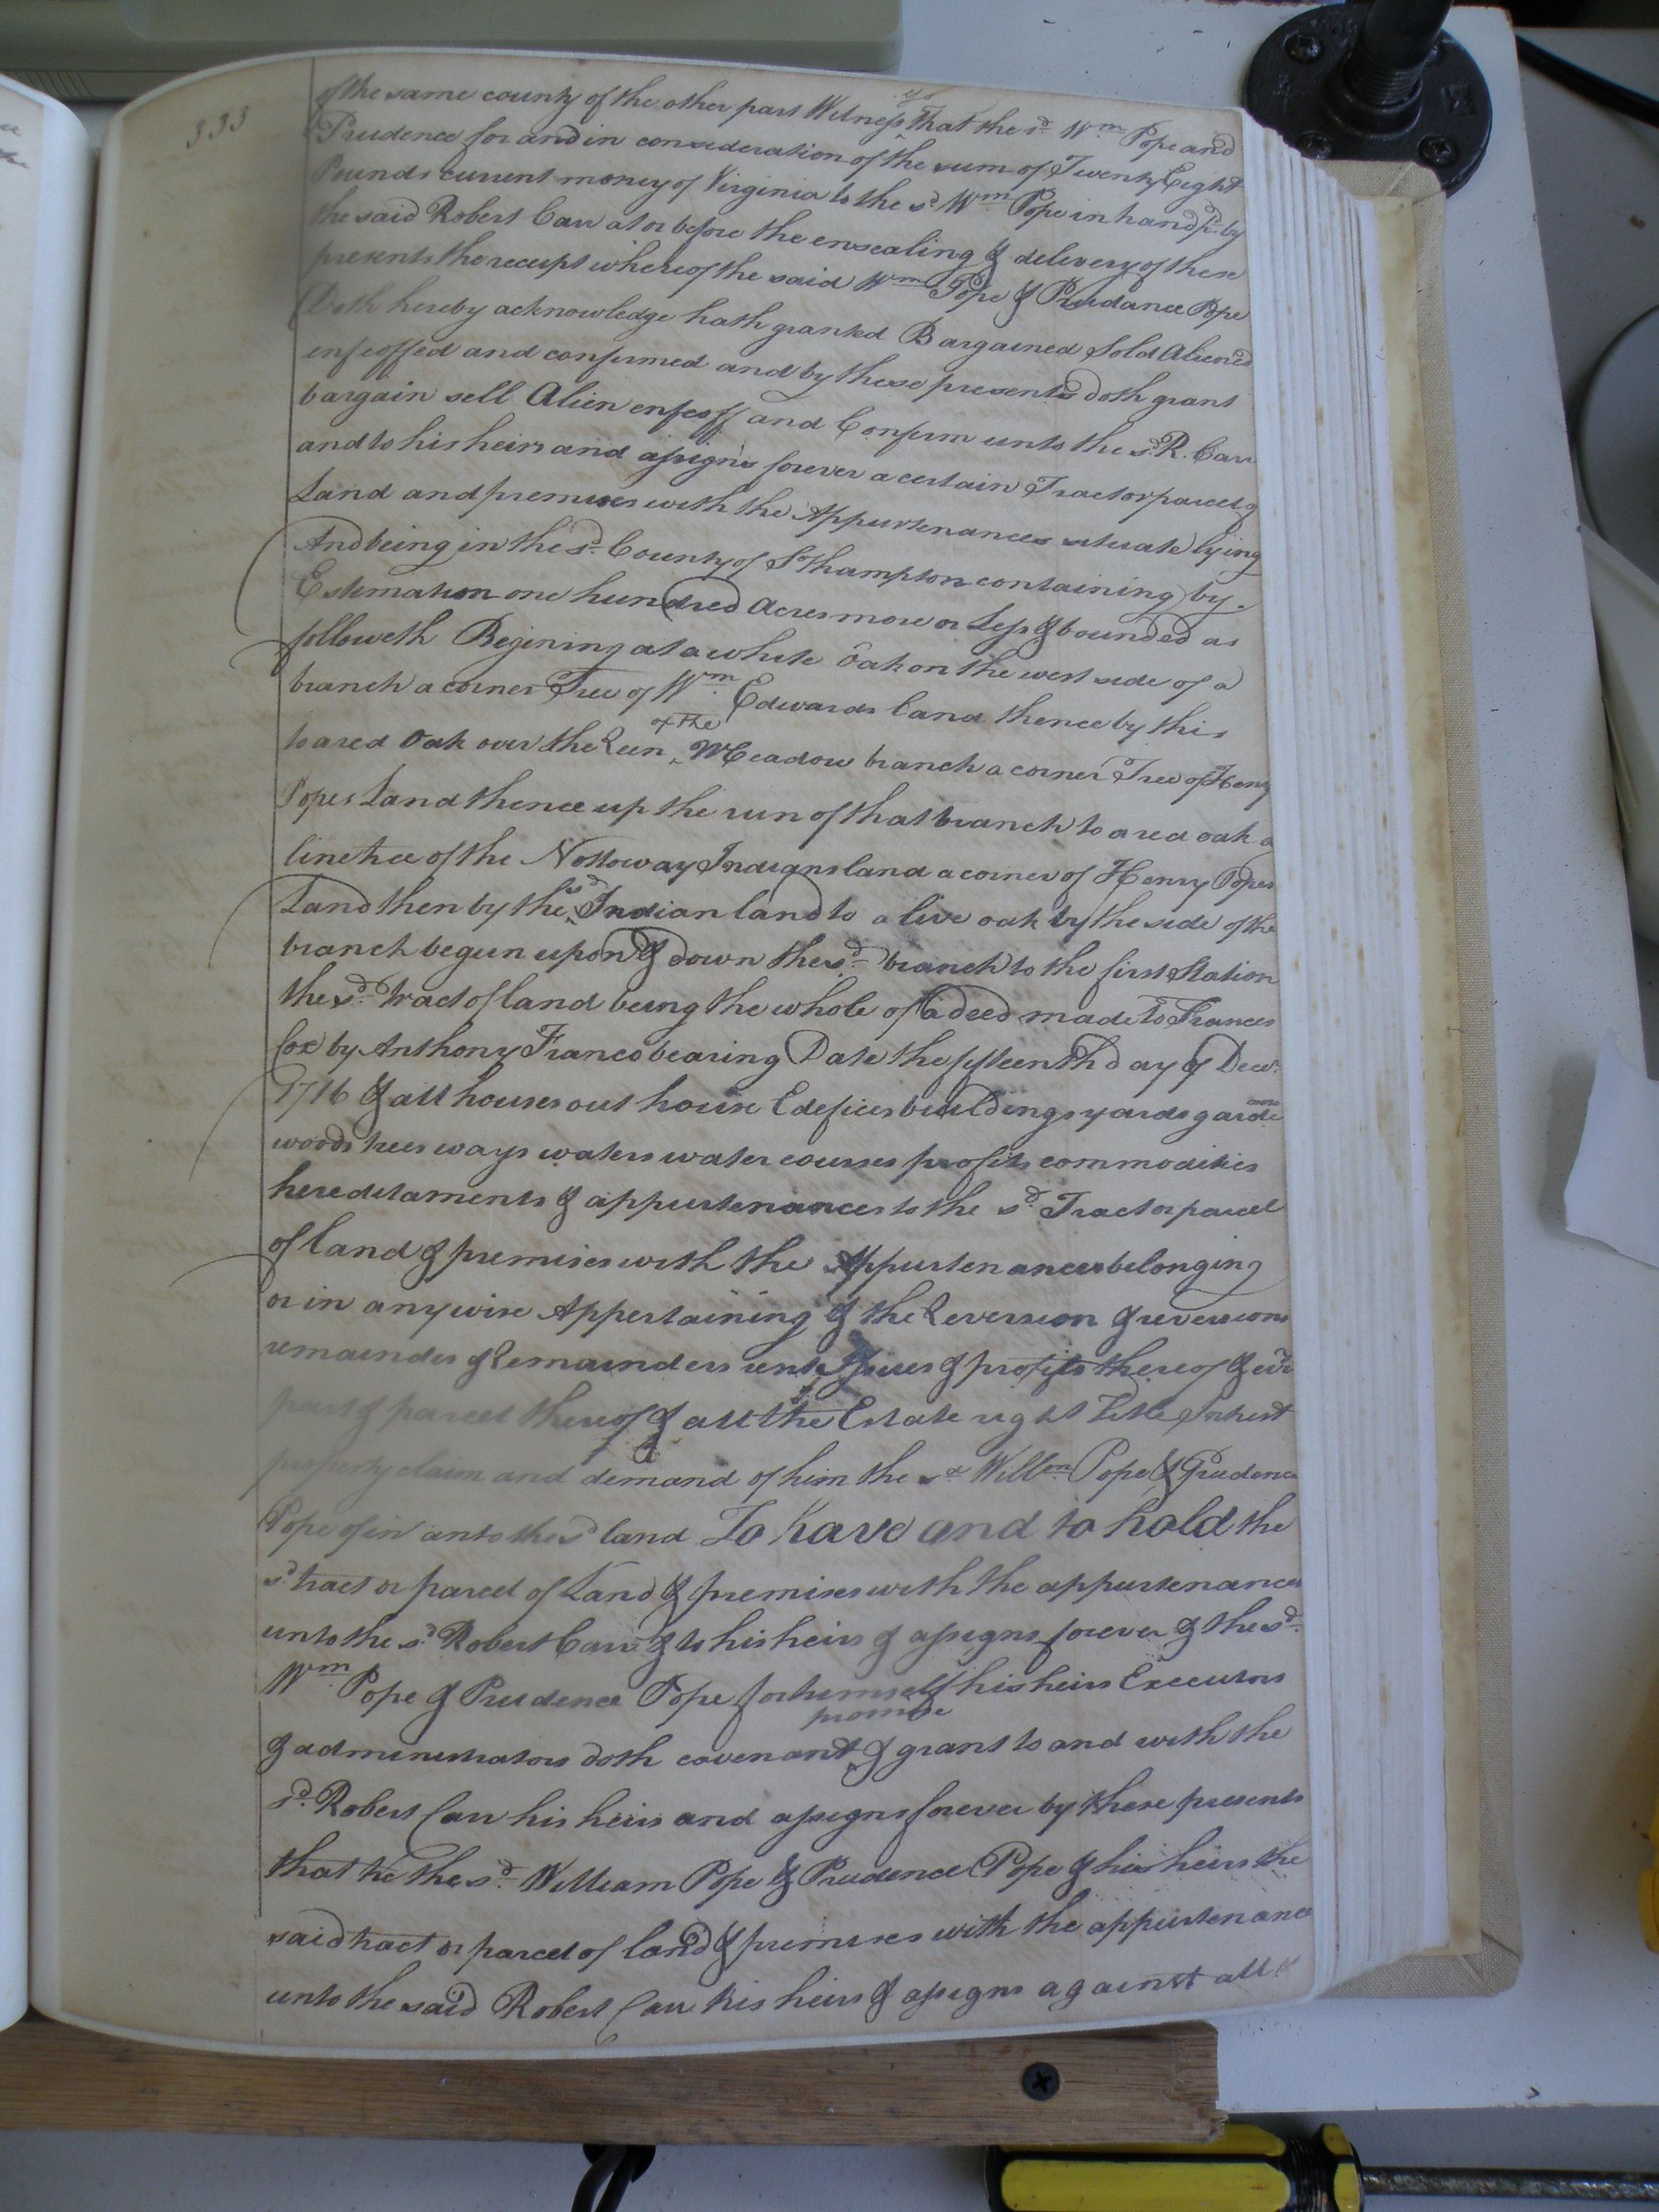 333
of the same county of the other part Witnesseth That the sd. Wm. Pope and
Prudence for and in consideration of the sum of Twenty Eight
Pounds current money of Virginia to the sd Wm. Pope in hand pd. by
the said Robert Carr at or before the ensealing & delivery of these
presents the receipt whereof the said Wm. Pope & Prudance Pope
Doth hereby acknowledge hath granted Bargained Sold Aliened
enfeoffed and confirmed and by these presents doth grant
bargain sell Alien enfeoff and Confirm unto the sd. R. Carr
and to his heirs and assigns forever a certain Tract or parcel of
Land and premises with the Appurtenances situate lying
And being in the sd. County of Sthampton containing by
Estimation one hundred Acres more or Less & bounded as
followeth Begining at a white oak on the west side of a
branch a corner Tree of Wm. Edwards land thence by this
to a red Oak over the Run of the Meadow branch a corner Tree of Henry
Popes Land thence up the run of that branch to a red oak a
line tree of the Nottoway Indians land a corner of Henry Popes
Land then by the sd Indian land to a live oak by the side of the
branch begun upon & down the sd. branch to the first Station
the sd. tract of land being the whole of a deed made to Frances
Cox by Anthony Franco bearing Date the fifteenth day of Decr.
1716 & all houses out house Edefices buildings yards garde
woods trees ways waters water courses profits commodities
hereditaments & appurtenances to the sd. Tract or parcel
of land & premises with the Appurtenances belonging
or in any wise Appertaining & the Reversion & reversions
remainder & Remainders rents Issues & profits thereof &
part & parcel thereof & all the Estate right Title Intrest
property claim and demand of him the sd Willm. Pope & Prudence
Pope of in anto the sd land To have and to hold the
sd. tract or parcel of Land & premises with the appurtenances
unto the sd. Robert Carr & to his heirs & assigns forever & the sd.
Wm. Pope & Prudence Pope for himself his heirs Executors
& administrators doth covenant promise & grant to and with the
sd. Robert Carr his heirs and assigns forever by these presents
that he the sd. William Pope & Prudence Pope & his heirs the
said tract or parcel of land & premises with the appurtenance
unto the said Robert Carr his heirs & assigns against all